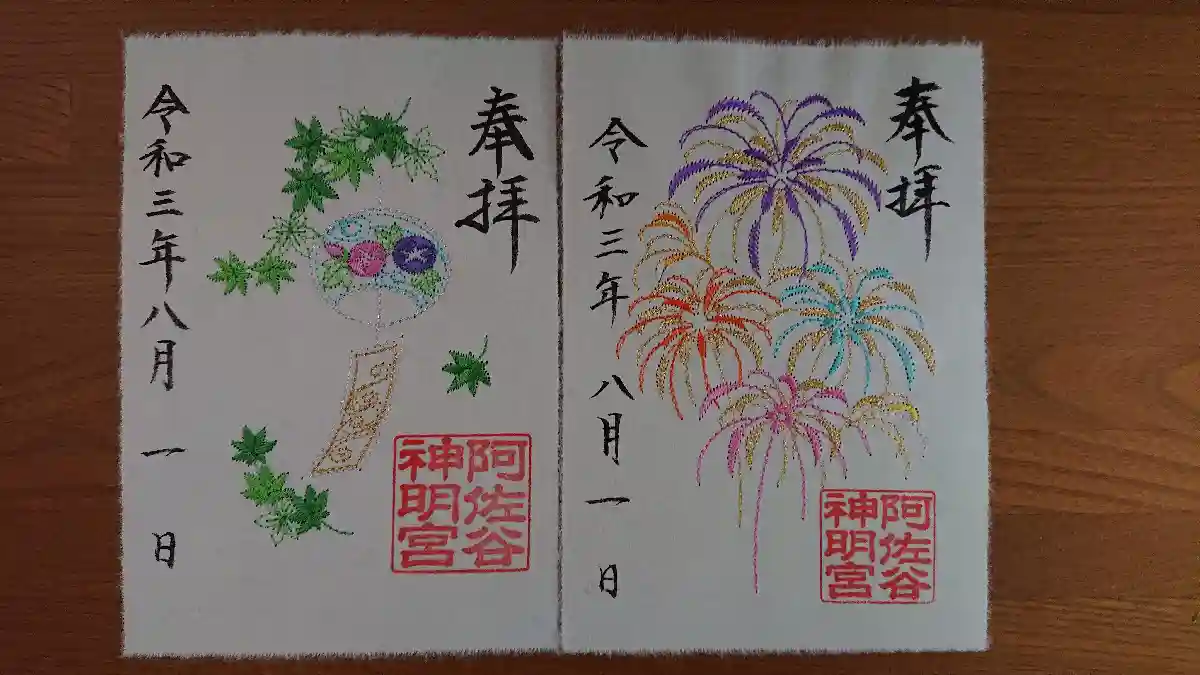 奉拝
令和三年八月一日
阿佐谷
神明宮
奉拝
令和三年八月一日
阿佐谷
神明宮